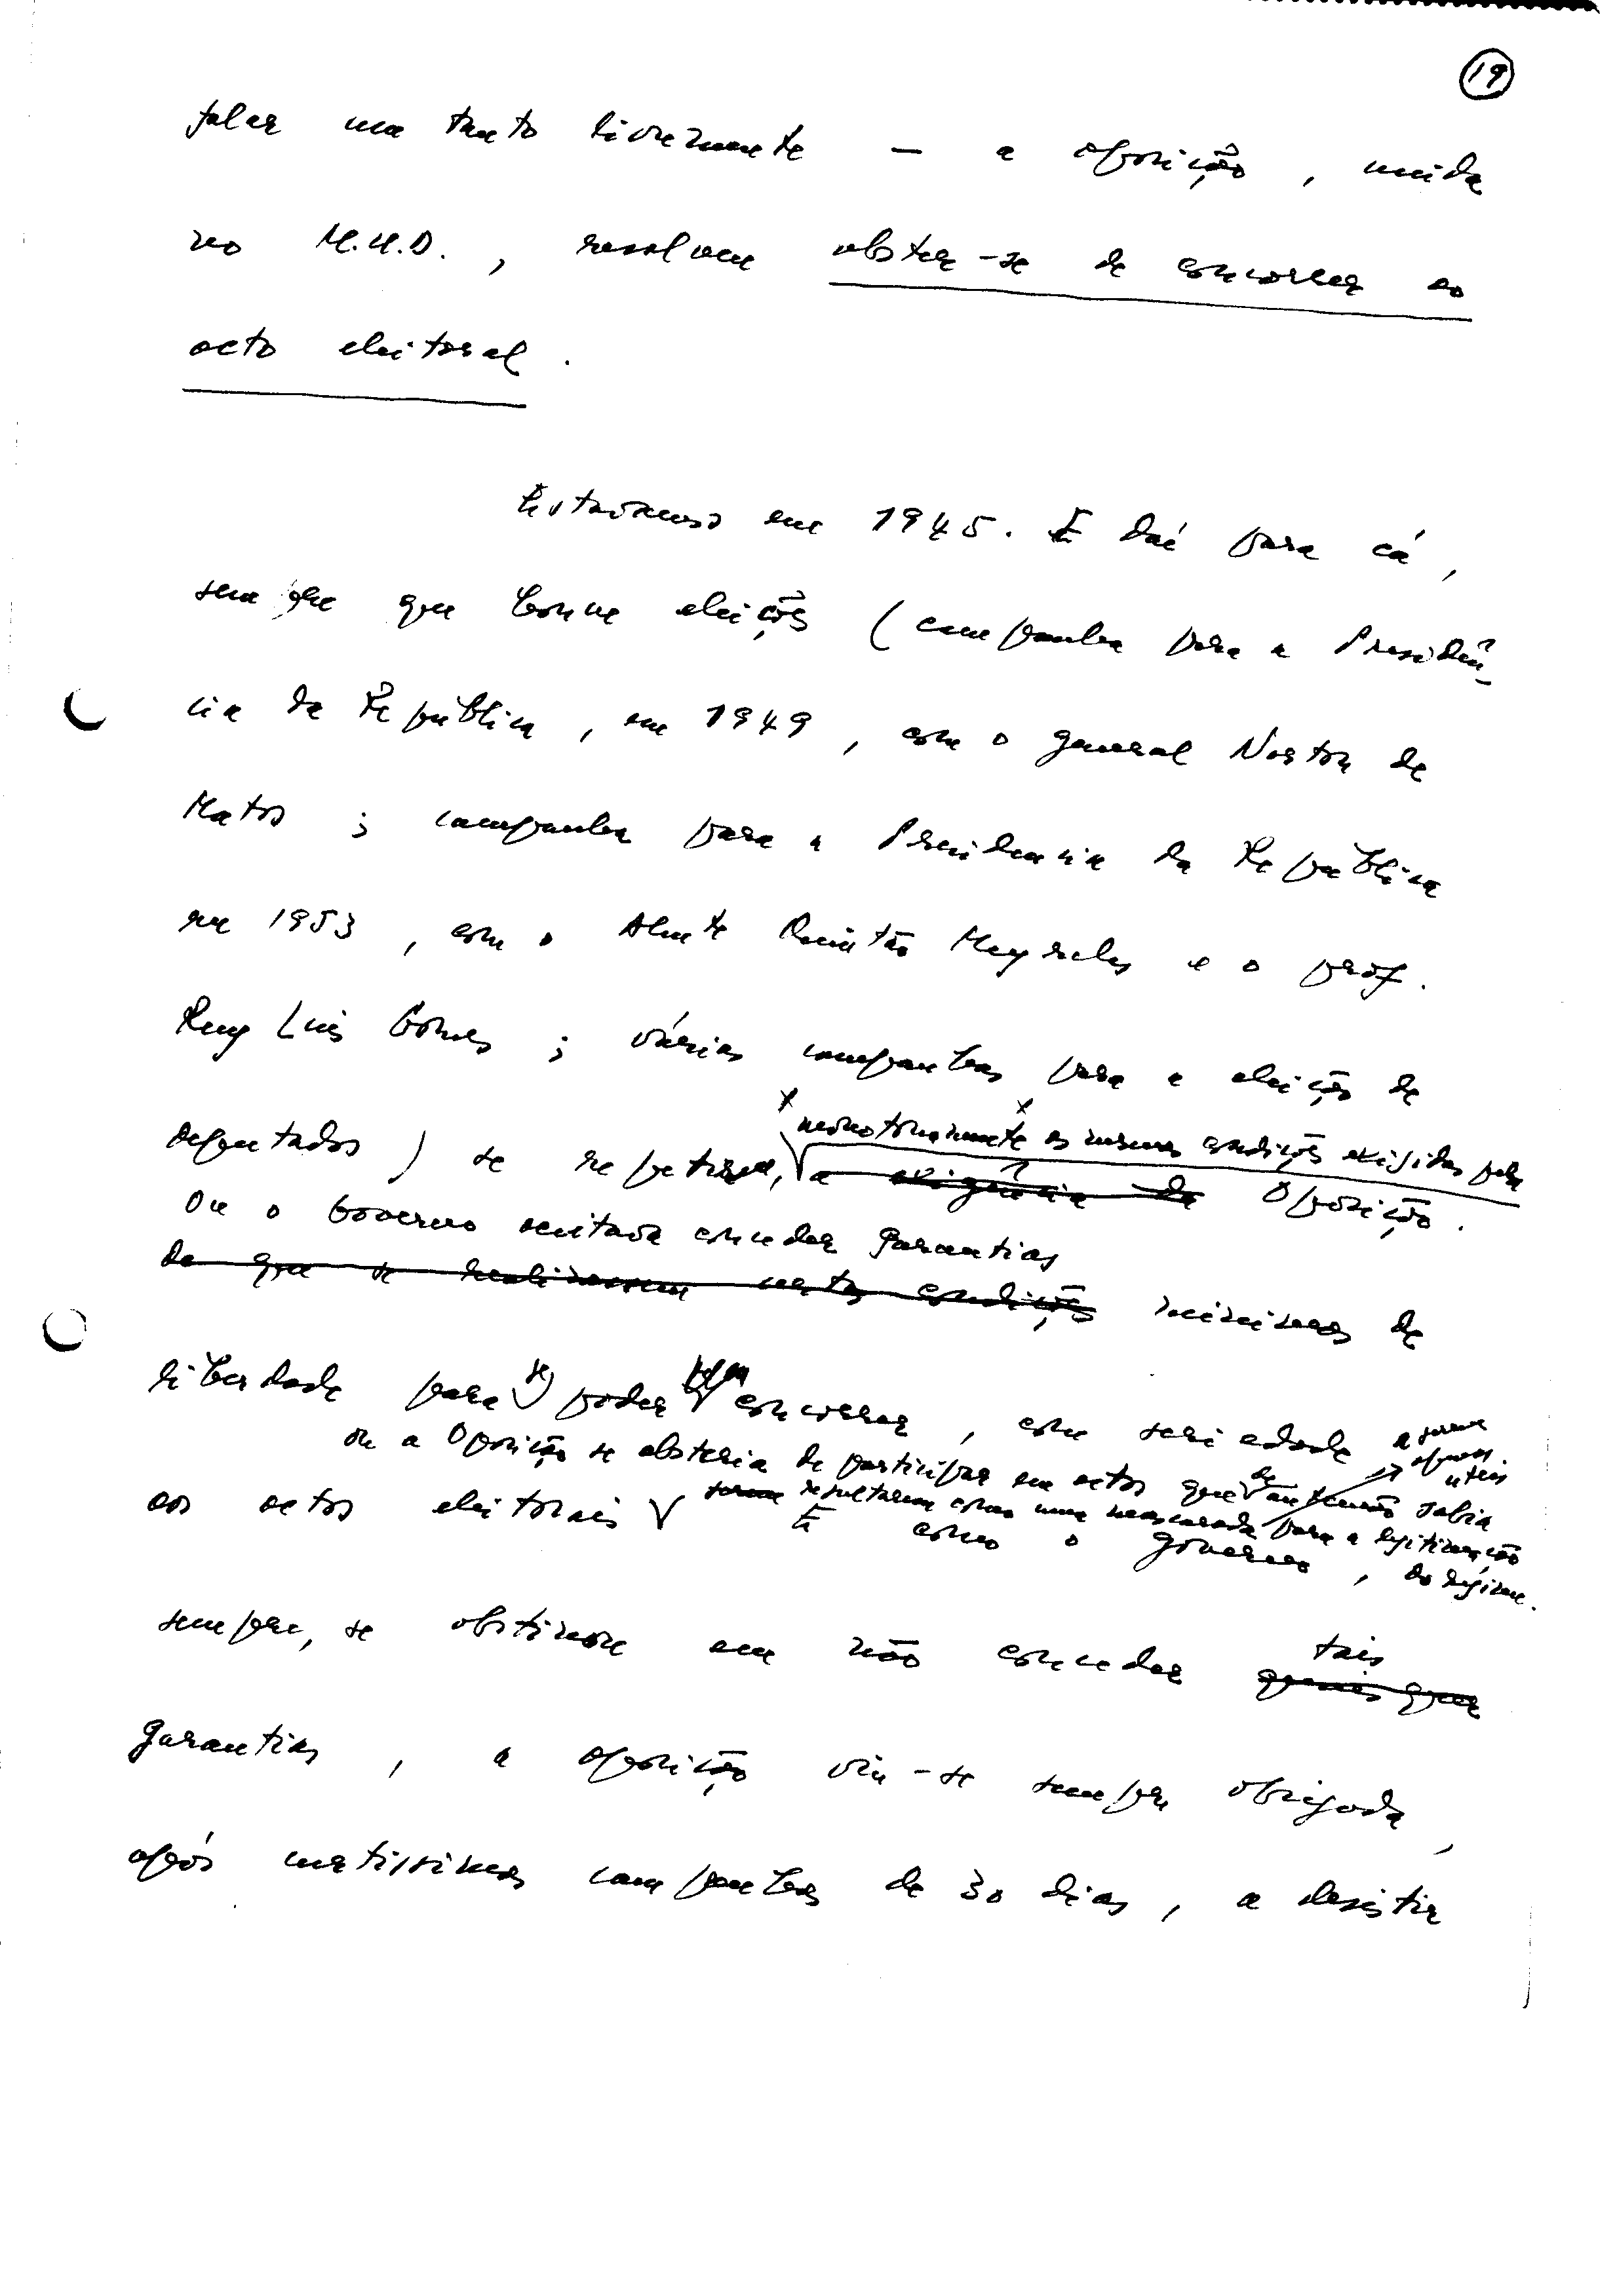 19
falar um tanto livremente — a oposição, unida
no M.U.D., resolveu abster-se de concorrer ao
acto eleitoral.
Estávamos em 1945. E daí para cá,
sempre que houve eleições (campanha para a Presidên-
cia da República, em 1949, com o general Norton de
Matos; campanha para a Presidencia da República
em 1953, com o Almte Quintão Meyreles e o prof.
Ruy Luís Gomes; várias campanhas para a eleição de
monotonamente as mesmas condições exigidas pela
deputados) se repetiram, a exigência da Oposição.
Ou o Governo aceitava conceder garantias
de que se realizassem nestas condições mínimas de
liberdade para se poder concorrer, com seriedade
ou a Oposição se absteria de participar em actos que de antemão sabia
aos actos eleitorais resultarem como uma mascarada para a legitimação
E como o governo, do regime.
sempre, se obstinou em não conceder tais
garantias, a oposição viu-se sempre obrigada,
após curtíssimas campanhas de 30 dias, a desistir